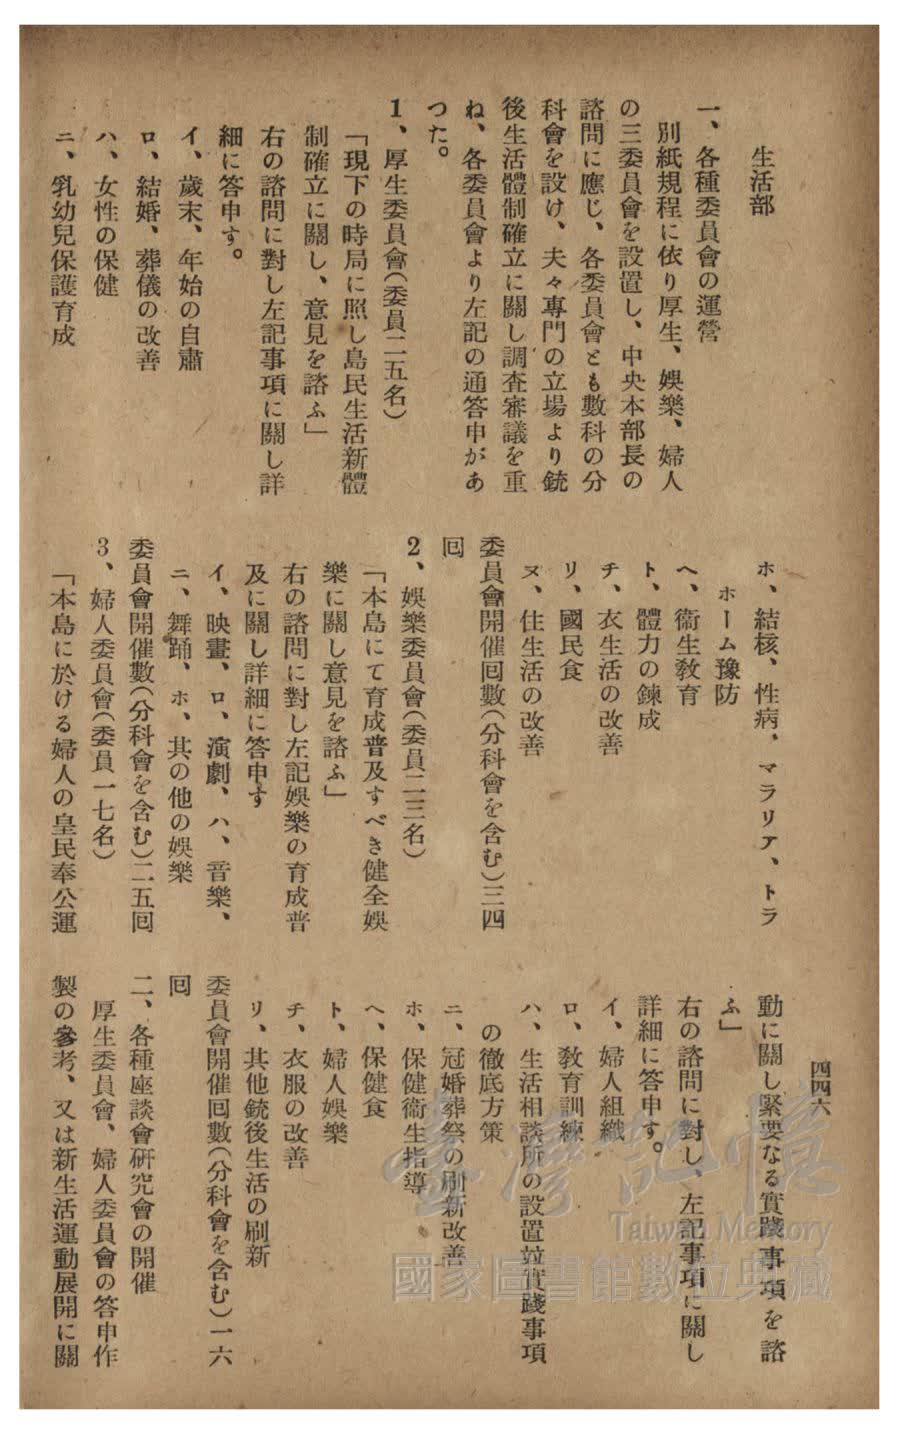 四四六
生活部
一、各種委員會の運營
別紙規程に依り厚生、娯樂、婦人
の三委員會を設置し、中央本部長の
諮問に應じ、各委員會とも數科の分
科會を設け、夫々專門の立場より銃
後生活體制確立に關し調査審議を重
ね、各委員會より左記の通答申があ
つた。
1、厚生委員會(委員二五名)
「現下の時局に照し島民生活新體
制確立に關し、意見を諮ふ」
右の諮問に對し左記事項に關し詳
細に答申す。
イ、歲末、年始の自肅
ロ、結婚、葬儀の改善
ハ、女性の保健
ニ、乳幼兒保護育成
ホ、結核、性病、マラリア、トラ
ホーム豫防
ヘ、衞生敎育
ト、體力の鍊成
チ、衣生活の改善
リ、國民食
ヌ、住生活の改善
委員會開催回數(分科會を含む)三四
回
2、娯樂委員會(委員二三名)
「本島にて育成普及すべき健全娯
樂に關し意見を諮ふ」
右の諮問に對し左記娯樂の育成普
及に關し詳細に答申す
イ、映畫、ロ、演劇、ハ、音樂、
ニ、舞踊、ホ、其の他の娯樂
委員會開催數(分科會を含む)二五回
3、婦人委員會(委員一七名)
「本島に於ける婦人の皇民奉公運
動に關し緊要なる實踐事項を諮
ふ」
右の諮問に對し、左記事項に關し
詳細に答申す。
イ、婦人組織
ロ、敎育訓練
ハ、生活相談所の設置竝實踐事項
の徹底方策
ニ、冠婚葬祭の刷新改善
ホ、保健衞生指導
ヘ、保健食
ト、婦人娯樂
チ、衣服の改善
リ、其他銃後生活の刷新
委員會開催回數(分科會を含む)一六
回
二、各種座談會硏究會の開催
厚生委員會、婦人委員會の答申作
製の參考、又は新生活運動展開に關
臺灣記憶
Taiwan Memory
國家圖書館數位典藏